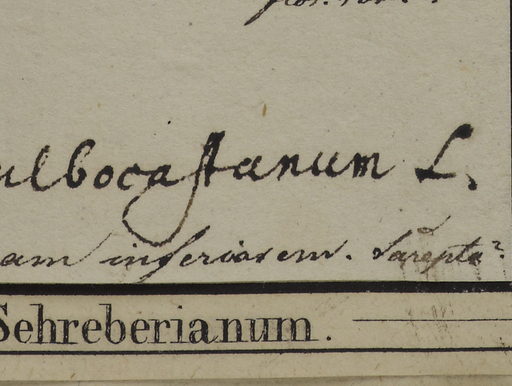 ulbocastanum L.
am inferiorem. Sarepta?
Schreberianum.